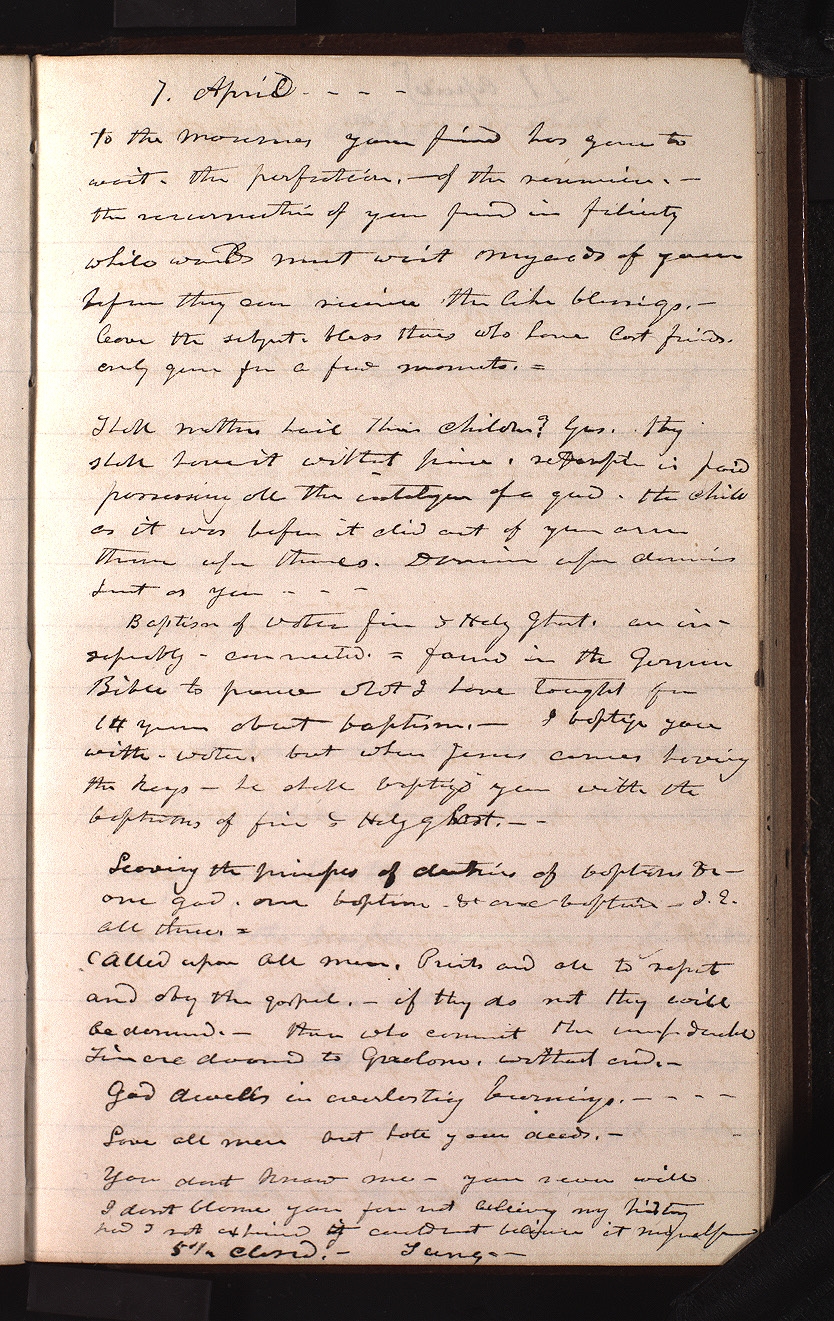 7. April - - - -
to the mourners your friend has gone to
wait. the perfection. — of the reunion. —
the resurrection of your friend in felicity
while worlds must wait myriads of years
before they can receive the like blessings. —
leave the subject. bless those who have lost friends.
only gone for a few moments. =
Shall mothers have their children? Yes. they
shall have it without price. redemption is paid
possessing all the intelligence of a god. the child
as it was before it died out of your arms
thrones upon thrones. Dominion upon dominion
just as you - - -
Baptism of water fire & Holy Ghost. are in-
seperably - connected. = found in the German
Bible to prove what I have taught for
14 years about baptism. — I baptize you
with. water. but when Jesus comes having
the keys — he shall baptize you with the
baptism of fire & Holy Ghost. — -
Leaving the principles of doctrine of baptism &c —
one god. one baptism - & one baptism — I. E.
all three. =
called upon all men. Priests and all to repent
and obey the gospel. — if they do not they will
be damned. — those who commit the unpardonable
sin are doomed to Gnolom. without end. —
God dwells in everlasting burnings. — - - -
Love all men but hate your deeds. —
You dont know me — you never will
I dont blame you for not believing my history
had I not experienced it could not believe it myself
5½ closed. —